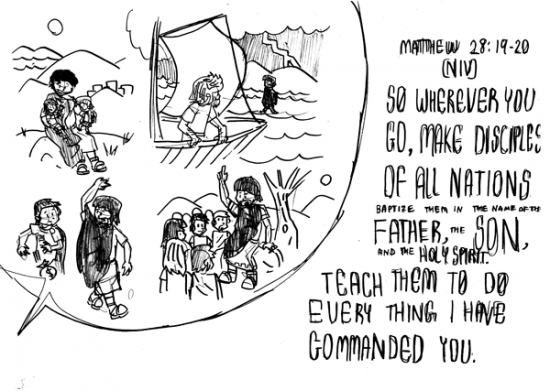 MATTHEW 28:19-20
(NIV)
SO WHEREVER YOU
GO, MAKE DISCIPLES
OF ALL NATIONS
BAPTIZE THEM IN THE NAME OF THE
FATHER, THE SON,
AND THE HOLY SPIRIT.
TEACH THEM TO DO
EVERY THING I HAVE
COMMANDED YOU.